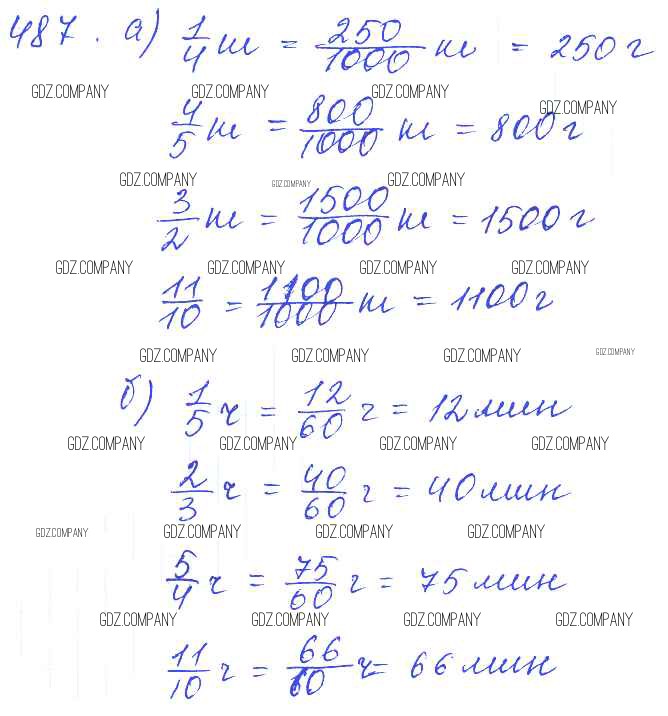 487. а) 1/4 кг = 250/1000 кг = 250 г
GDZ.COMPANY GDZ.COMPANY GDZ.COMPANY GDZ.COMPANY
4/5 кг = 800/1000 кг = 800 г
GDZ.COMPANY GDZ.COMPANY GDZ.COMPANY
3/2 кг = 1500/1000 кг = 1500 г
GDZ.COMPANY GDZ.COMPANY GDZ.COMPANY GDZ.COMPANY
11/10 = 1100/1000 кг = 1100 г
GDZ.COMPANY GDZ.COMPANY GDZ.COMPANY GDZ.COMPANY
б) 1/5 ч = 12/60 ч = 12 мин
GDZ.COMPANY GDZ.COMPANY GDZ.COMPANY GDZ.COMPANY
2/3 ч = 40/60 ч = 40 мин
GDZ.COMPANY GDZ.COMPANY GDZ.COMPANY GDZ.COMPANY
5/4 ч = 75/60 ч = 75 мин
GDZ.COMPANY GDZ.COMPANY GDZ.COMPANY GDZ.COMPANY
11/10 ч = 66/60 ч = 66 мин